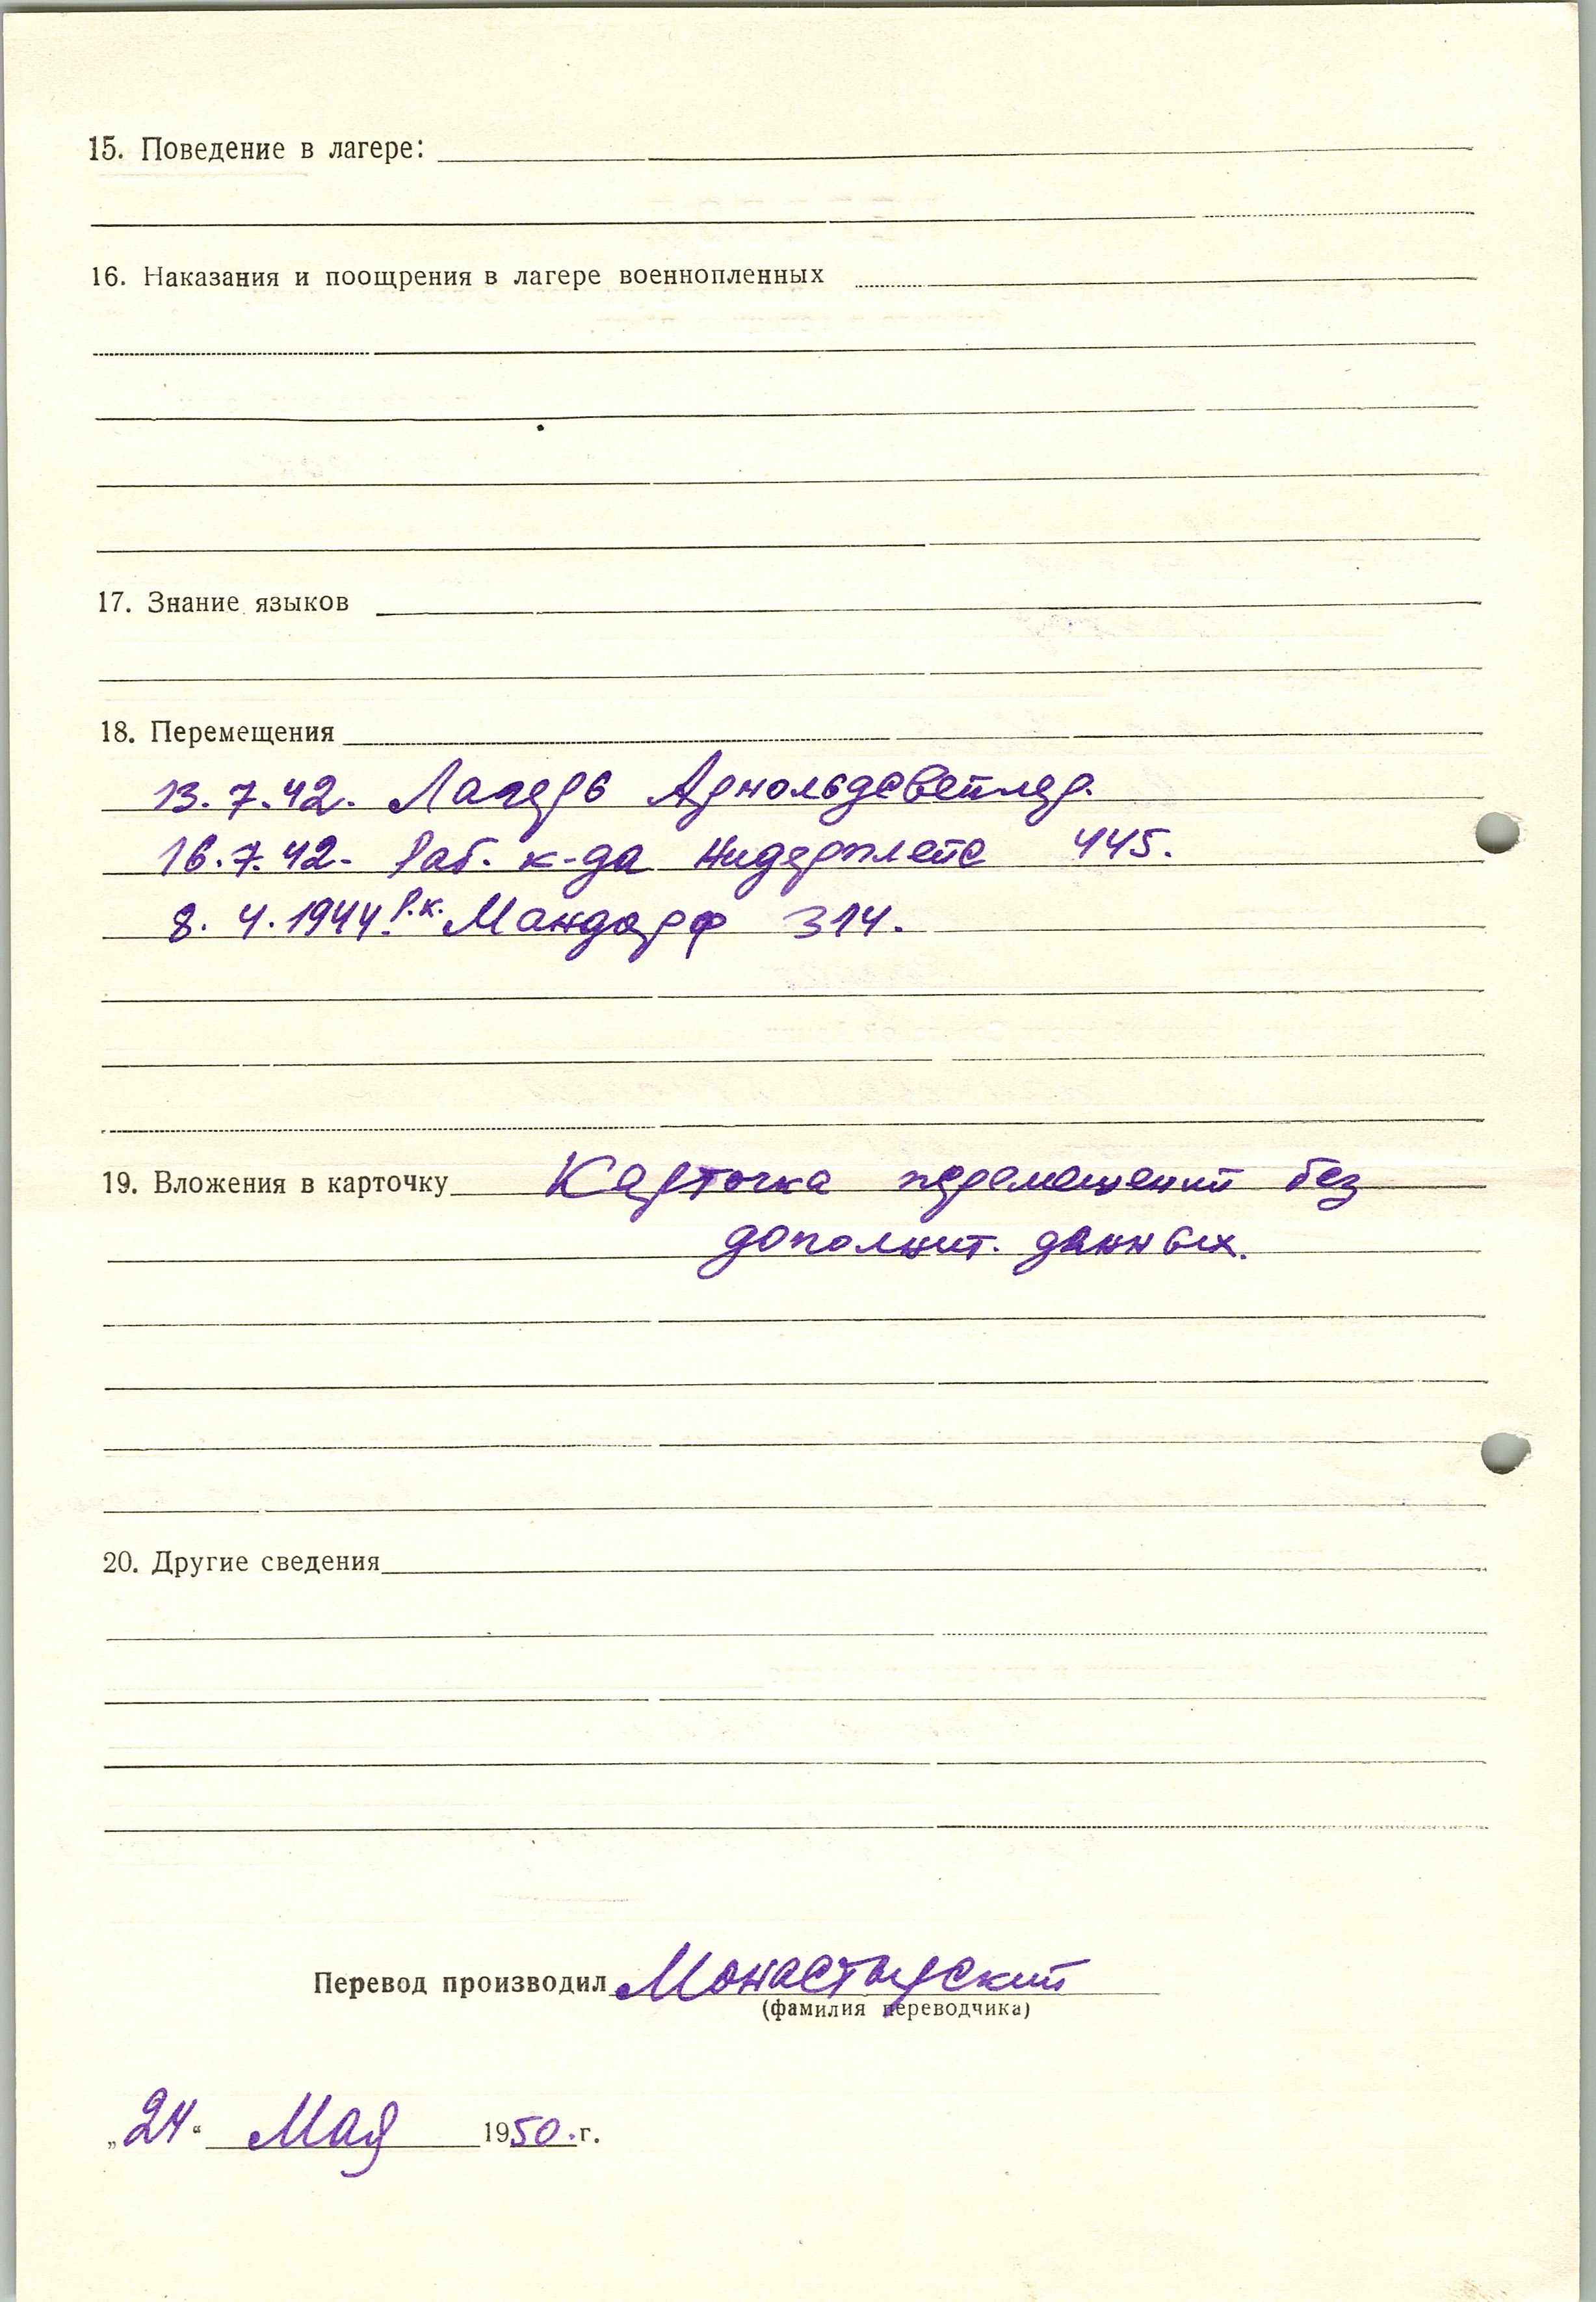 15. Поведение в лагере:
16. Наказания и поощрения в лагере военнопленных
17. Знание языков
18. Перемещения
13.7.42. Лагерь Арнольдсвейлер.
16.7.42. Раб. к-да Нидерплейс 445.
8.4.1944. Р.к. Мандорф 314.
19. Вложения в карточку Карточка перемещений без
дополнит. данных.
20. Другие сведения
Перевод производил Монастырский
(фамилия переводчика)
„24“ Мая 1950.г.